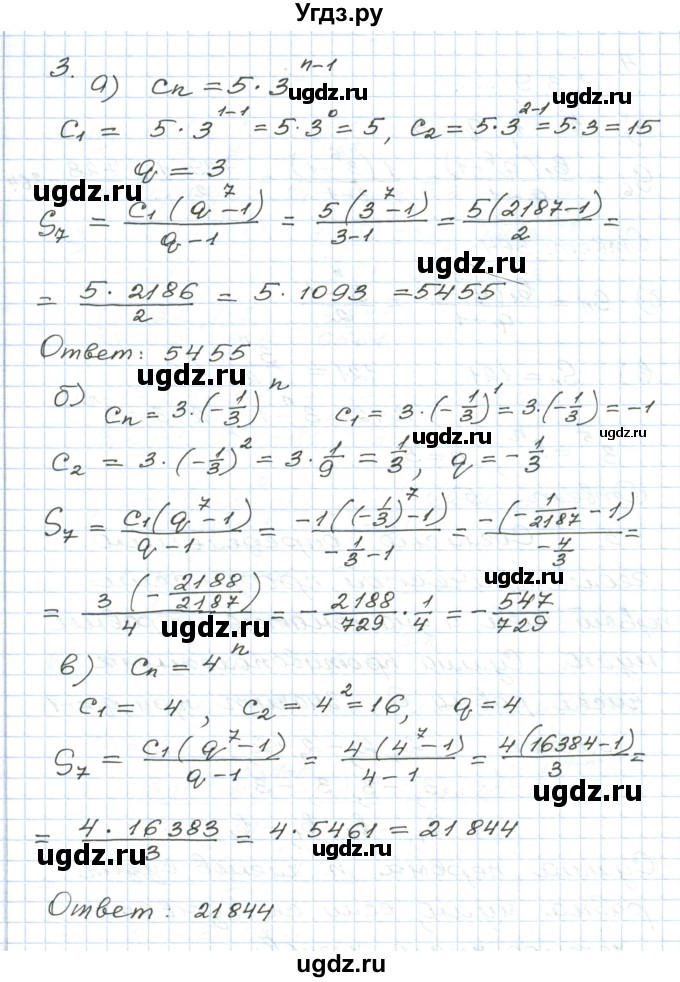 Угдз.ру
3. а) Cn = 5 · 3^(n-1)
ugdz.ru ugdz.ru
C1 = 5 · 3^(1-1) = 5 · 3^0 = 5, C2 = 5 · 3^(2-1) = 5 · 3 = 15
q = 3
ugdz.ru
S7 = C1(q^7-1)/(q-1) = 5(3^7-1)/(3-1) = 5(2187-1)/2 =
ugdz.ru
= 5 · 2186/2 = 5 · 1093 = 5455
Ответ: 5455
ugdz.ru
б) Cn = 3 · (-1/3)^n C1 = 3 · (-1/3)^1 = 3 · (-1/3) = -1
ugdz.ru ugdz.ru ugdz.ru
C2 = 3 · (-1/3)^2 = 3 · 1/9 = 1/3, q = -1/3
S7 = C1(q^7-1)/(q-1) = -1((-1/3)^7-1)/(-1/3-1) = -(-1/2187-1)/(-4/3) =
ugdz.ru
= 3(-2188/2187)/4 = -2188/729 · 1/4 = -547/729
ugdz.ru
в) Cn = 4^n
C1 = 4, C2 = 4^2 = 16, q = 4
S7 = C1(q^7-1)/(q-1) = 4(4^7-1)/(4-1) = 4(16384-1)/3 =
ugdz.ru
= 4 · 16383/3 = 4 · 5461 = 21844
ugdz.ru ugdz.ru
Ответ: 21844
ugdz.ru
ugdz.ru